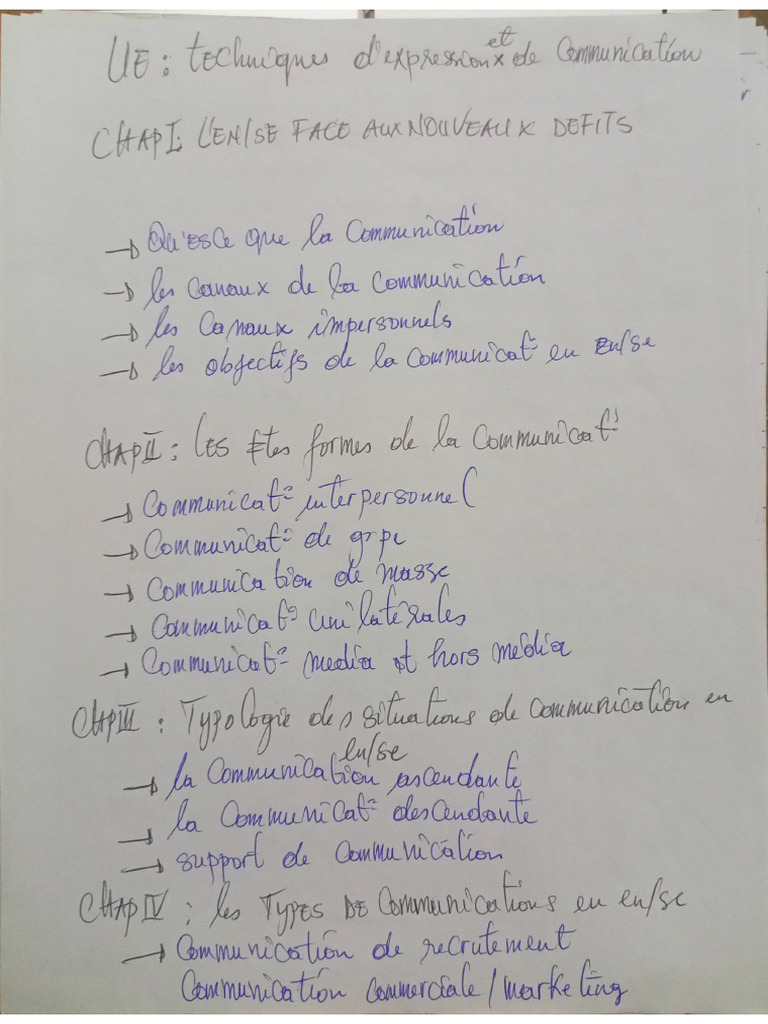 UE : techniques d'expression et de Communication
CHAP I: L'EN/SE FACE AUX NOUVEAUX DEFITS
→ Qu'esce que la Communication
→ les canaux de la communication
→ les Canaux impersonnels
→ les objectifs de la communicat° en en/se
CHAP II : LES ≠tes formes de la Communicat°
→ Communicat° interpersonnel
→ Communicat° de grpe
→ Communication de masse
→ Communicat° unilatérales
→ Communicat° media et hors média
CHAP III : Typologie des situations de communication en
en/se
→ la Communication ascendante
→ la Communicat° descendante
→ support de Communication
CHAP IV : les TYPES DE Communications en en/se
→ Communication de recrutement
Communication commerciale / marketing